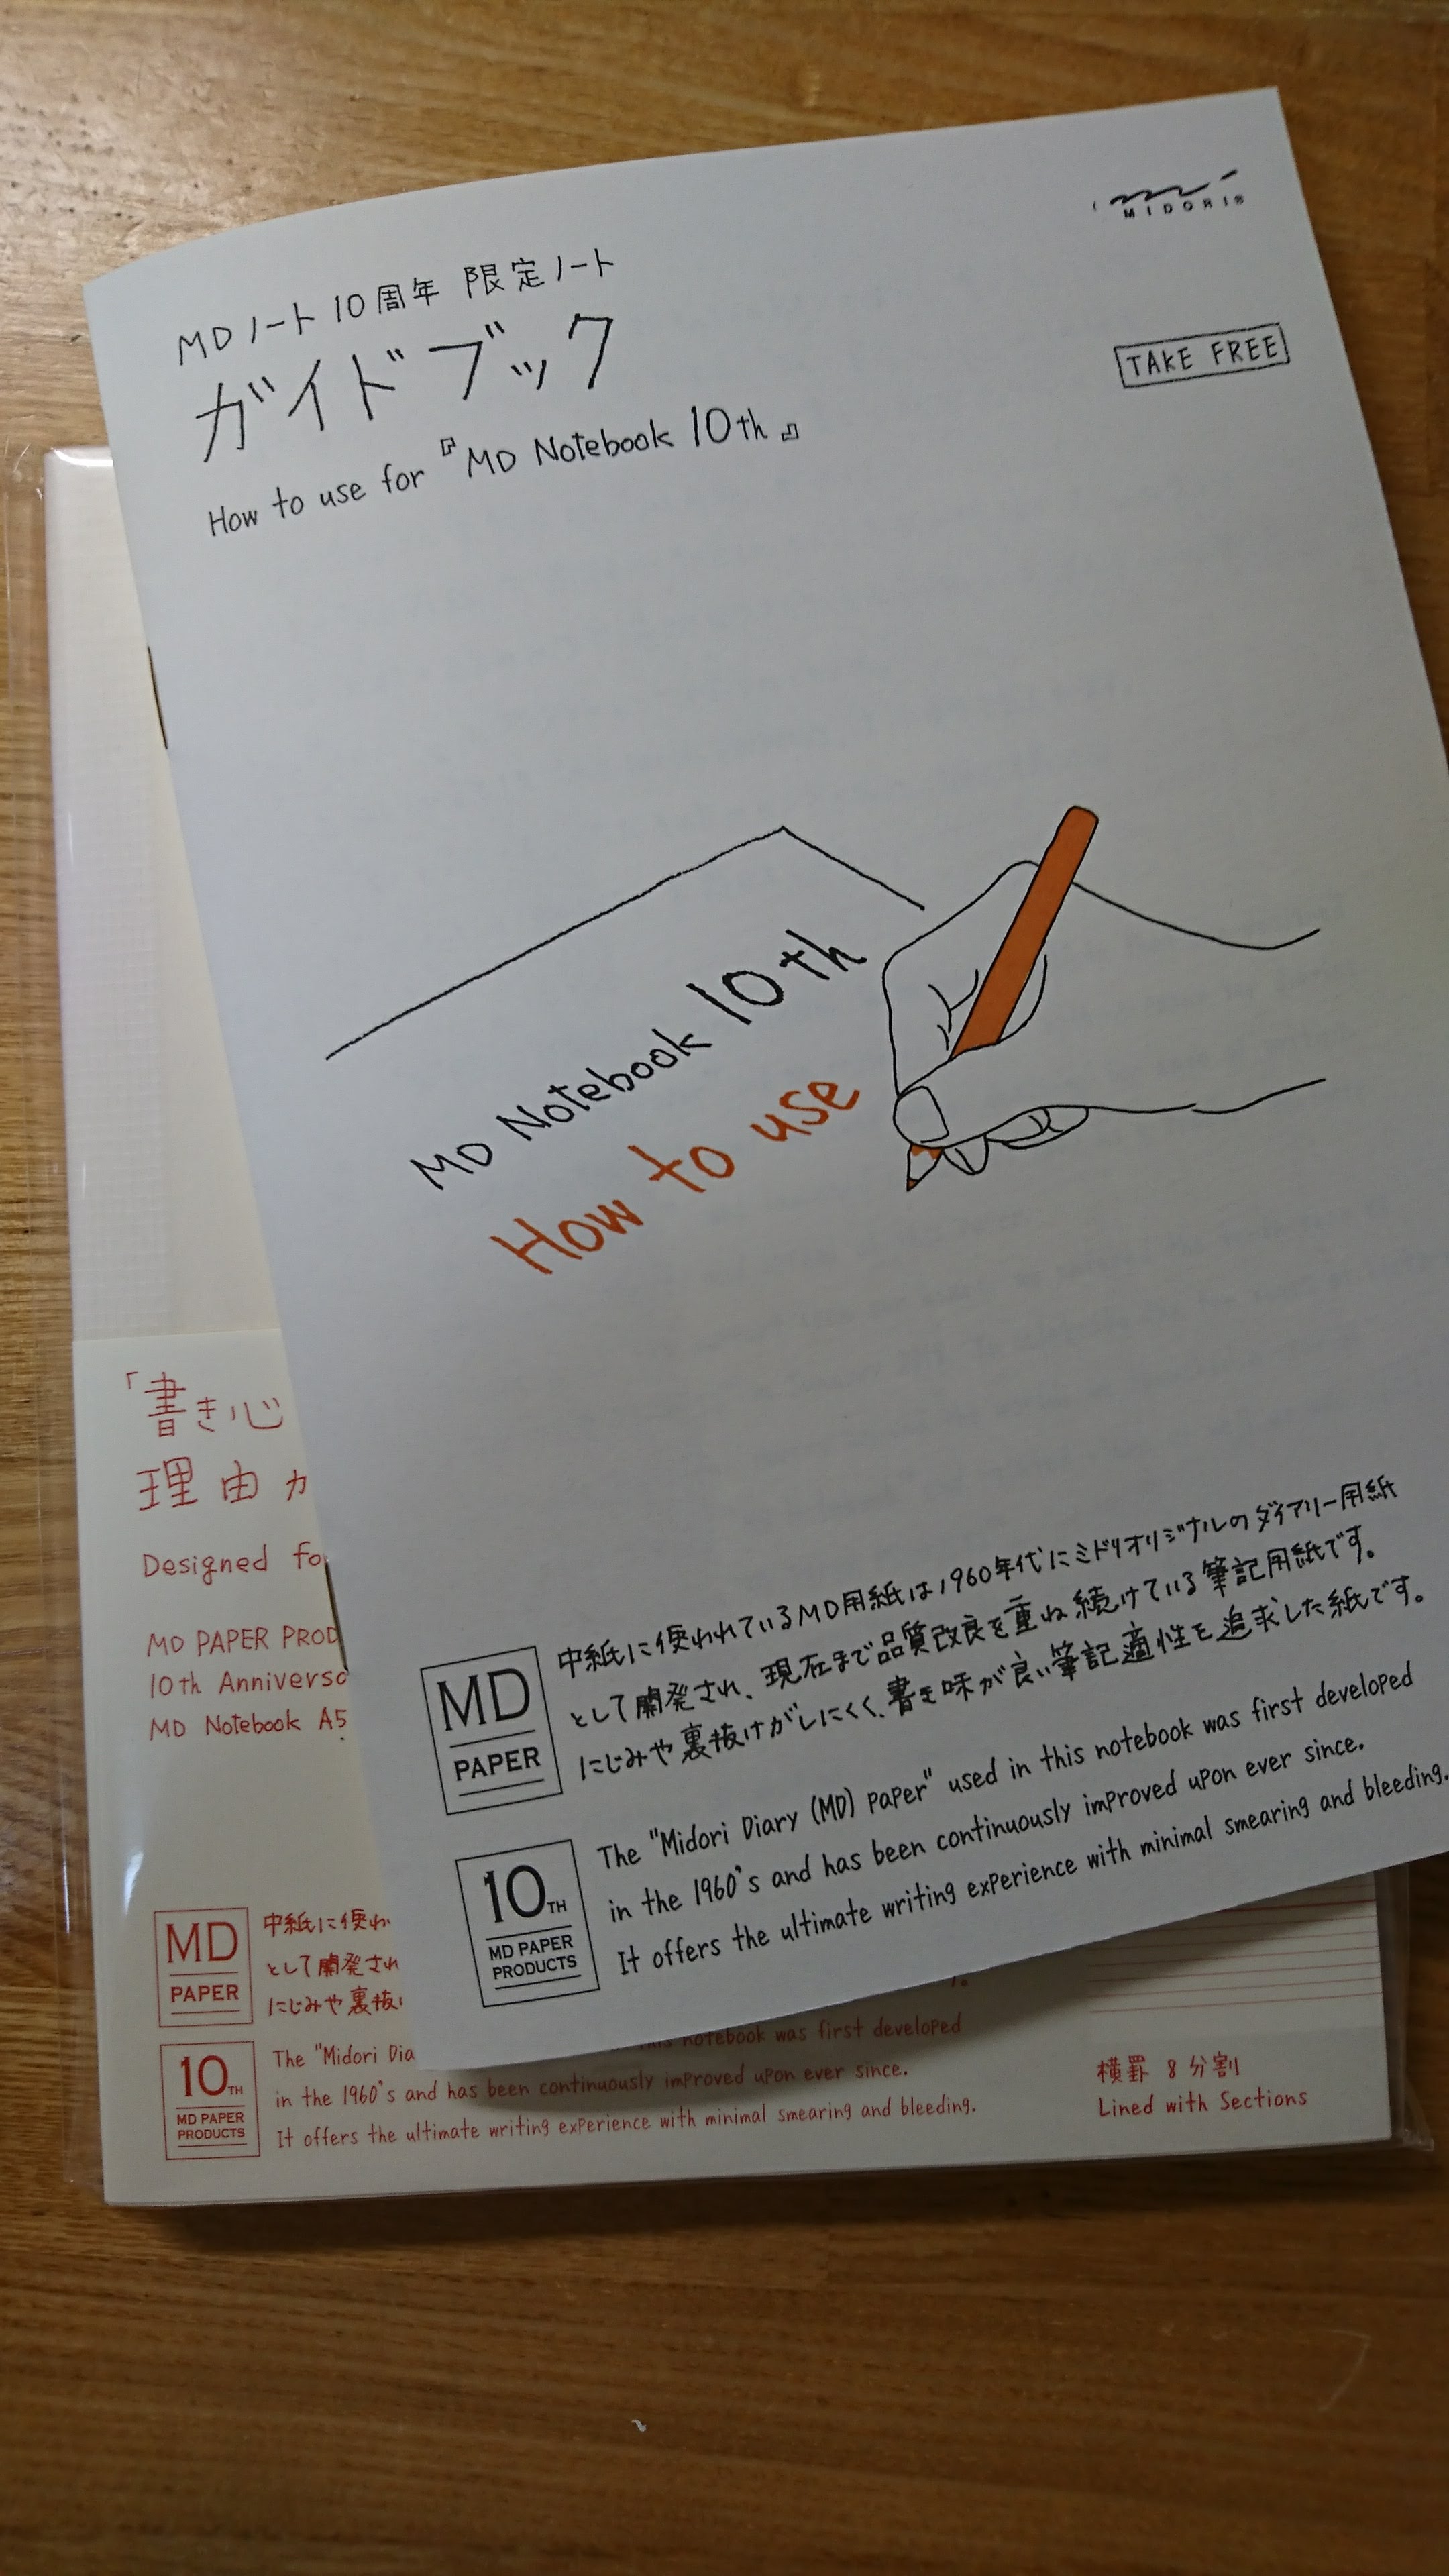 MIDORI®
MDノート10周年 限定ノート
ガイドブック
How to use for『MD Notebook 10th』
TAKE FREE
MD Notebook 10th
How to use
MD
PAPER
中紙に使われているMD用紙は1960年代にミドリオリジナルのダイアリー用紙
として開発され、現在まで品質改良を重ね続けている筆記用紙です。
にじみや裏抜けがしにくく、書き味が良い筆記適性を追求した紙です。
10TH
MD PAPER
PRODUCTS
The "Midori Diary (MD) paper" used in this notebook was first developed
in the 1960's and has been continuously improved upon ever since.
It offers the ultimate writing experience with minimal smearing and bleeding.
「書き心
理由が
Designed fo
MD PAPER PROD
10th Anniversa
MD Notebook A5
MD
PAPER
中紙に使わ
として開発され
にじみや裏抜
10TH
MD PAPER
PRODUCTS
The "Midori Dia
this notebook was first developed
in the 1960's and has been continuously improved upon ever since.
It offers the ultimate writing experience with minimal smearing and bleeding.
横罫 8分割
Lined with Sections